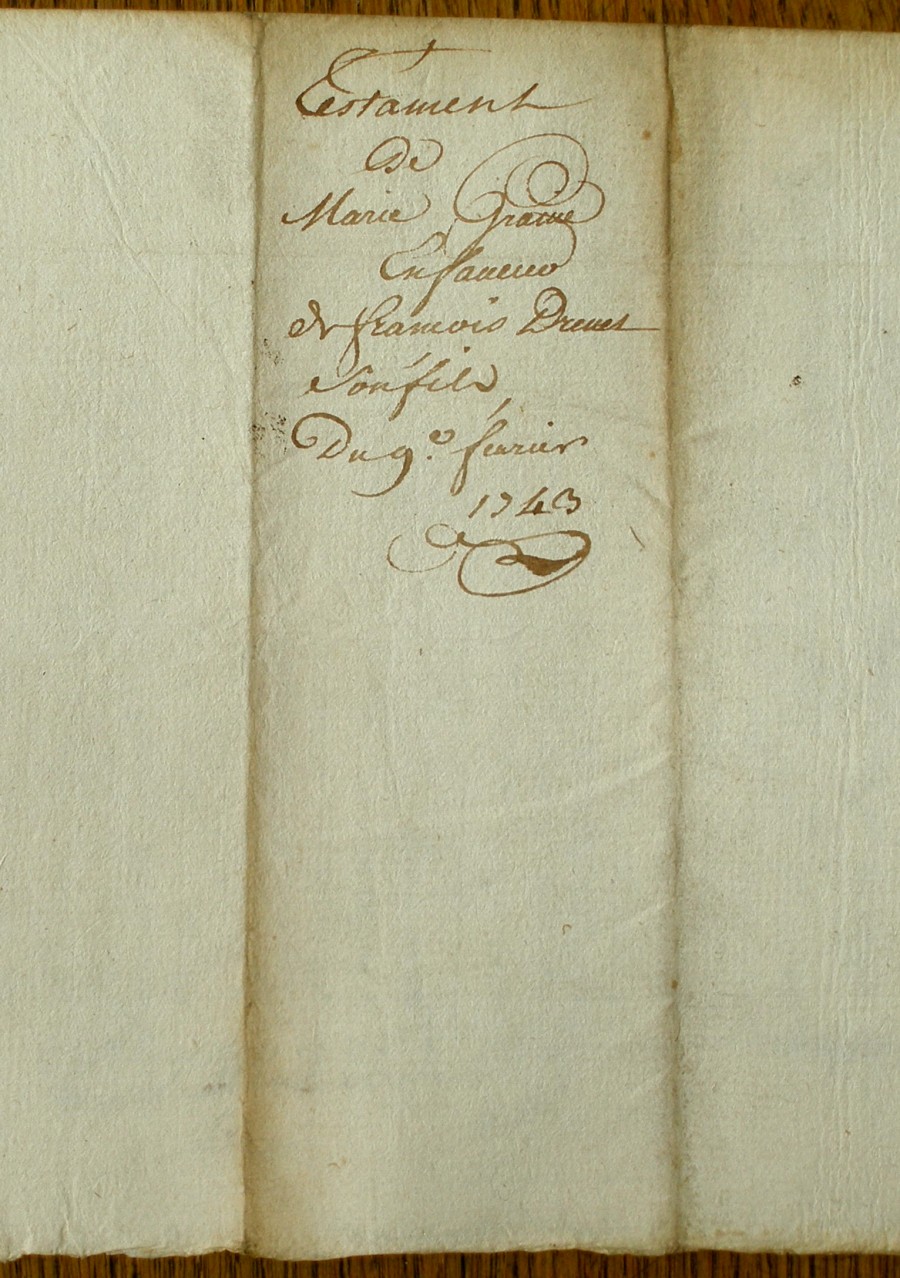 Testament
De
Marie
En faueur
de francois Dreuet
Son fils
Du 9.e feurier
1743